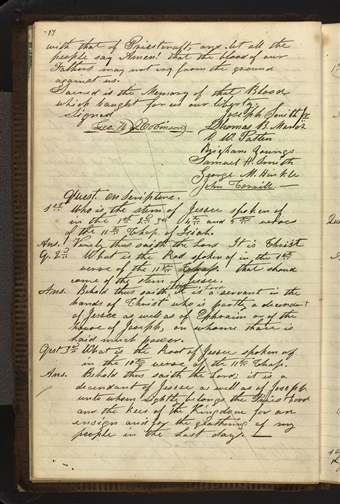 17
with that of Priestcraft, and let all the
people say Amen! that the blood of our
Fathers may not cry from the ground
against us.
Sacred is the Memory of that Blood
which baught for us our liberty.
Signed Joseph Smith Jr
Geo. W. Robinson Thomas B. Marsh
D. W. Patten
Brigham Youngs
Samuel H. Smith
George M. Hinkle
John Corrill
Quest. on Scripture.
1st Who is the stem of Jessee spoken of
in the 1st 2d 3d 4th and 5th verses
of the 11th Chap. of Isiah.
Ans. Verely thus saith the Lord It is Christ
Q. 2d What is the Rod spoken of in the 1st
verse of the 11th Chap. that should
come of the stem of Jessee.
Ans. Behold thus saith the Lord it is a servant in the
hands of Christ who is partly a decendant
of Jessee as well as of Ephraim or of the
house of Joseph, on whome thare is
laid much power.
Qest 3d What is the Root of Jessee spoken of
in the 10th verse of the 11th Chap.
Ans. Behold thus saith the Lord; it is a
decendant of Jessee as well as of Joseph
unto whom rightly belongs the Priesthood
and the kees of the Kingdom for an
ensign and for the geathering of my
people in the Last days.